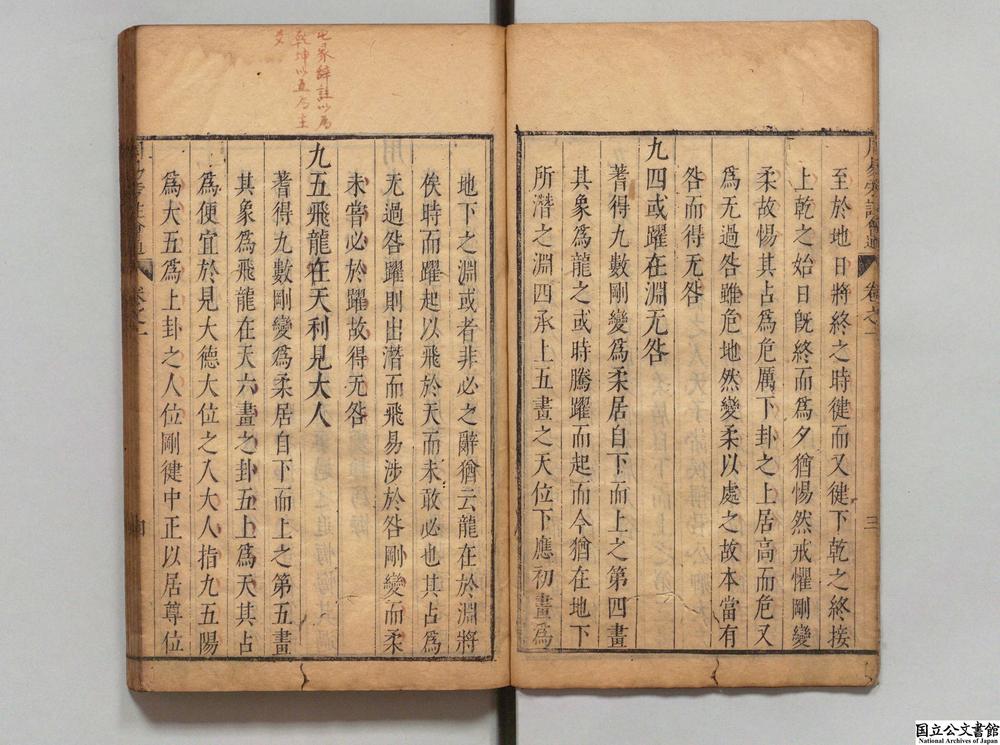 至於地日將終之時健而又健下乾之終接
上乾之始日旣終而為夕猶惕然戒懼剛變
柔故惕其占為危厲下卦之上居高而危又
為无過咎雖危地然變柔以處之故本當有
咎而得无咎
九四或躍在淵无咎
蓍得九數剛變為柔居自下而上之第四畫
其象為龍之或時騰躍而起而今猶在地下
所潛之淵四承上五畫之天位下應初畫為
地下之淵或者非必之辭猶云龍在於淵將
俟時而躍起以飛於天而未敢必也其占為
无過咎躍則由潛而飛易涉於咎剛變而柔
未嘗必於躍故得无咎
九五飛龍在天利見大人
蓍得九數剛變為柔居自下而上之第五畫
其象為飛龍在天六畫之卦五上為天其占
為便宜於見大德大位之人大人指九五陽
為大五為上卦之人位剛健中正以居尊位
卷之一
三
卷之一
屯彖辭註以為
乾坤以五為主
爻
国立公文書館
National Archives of Japan